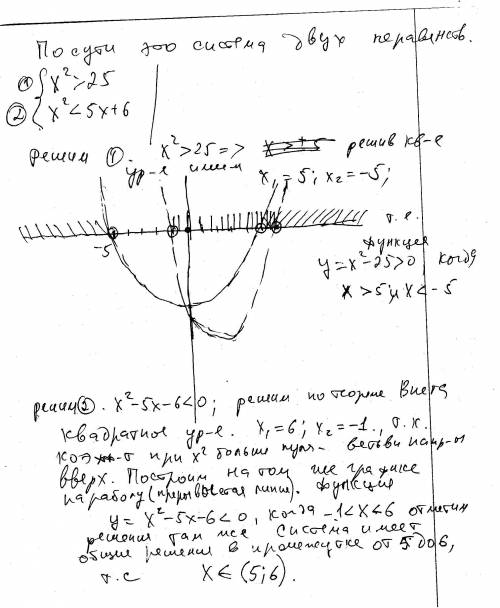 По сути это система двух неравенств.
① { x² > 25
② { x² < 5x+6
решим ①. x² > 25 => решив кв-е
ур-е имеем x₁ = 5; x₂ = -5;
-5
т.е.
функция
y = x² - 25 > 0 когда
x > 5 и x < -5
решим ②. x² - 5x - 6 < 0; решим по теореме Виета
квадратное ур-е. x₁ = 6; x₂ = -1., т.к.
коэф-т при x² больше нуля - ветви напр-ы
вверх. Построим на том же графике
параболу (прерывистая линия). Функция
y = x² - 5x - 6 < 0, когда -1 < x < 6 отметим
решения там же Система имеет
общие решения в промежутке от 5 до 6,
т.е x ∈ (5; 6).